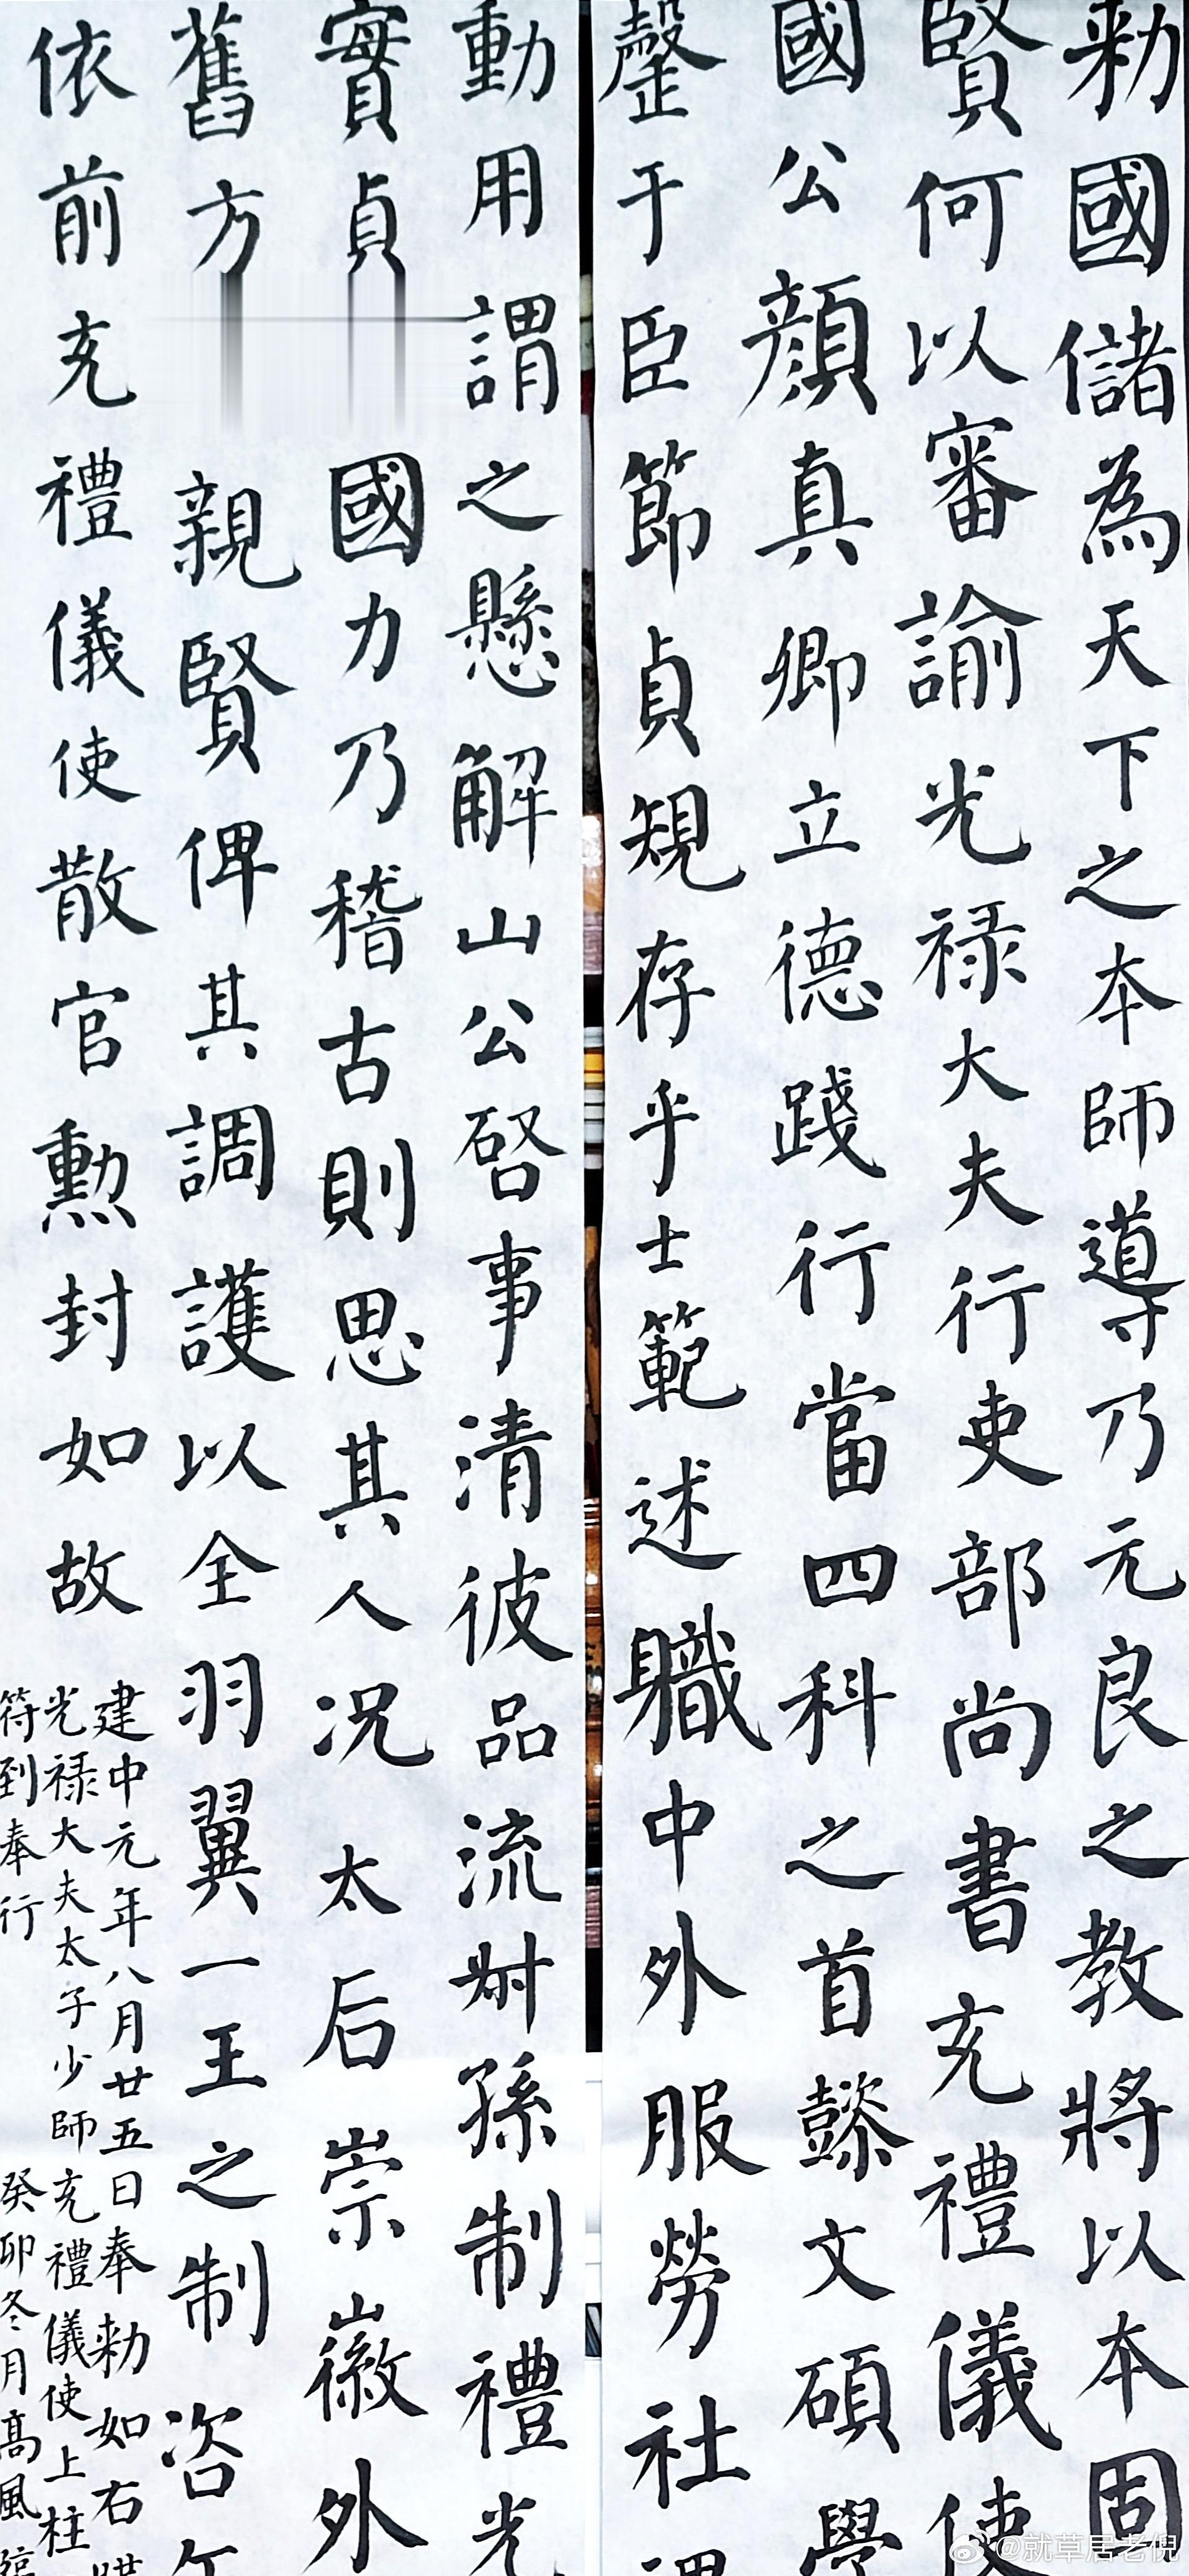 勅國儲為天下之本師導乃元良之教將以本固
賢何以審諭光禄大夫行吏部尚書充禮儀使
國公顔真卿立德踐行當四科之首懿文碩學
罄于臣節貞規存乎士範述職中外服勞社
動用謂之懸解山公啓事清彼品流叔孫制禮光
實貞國力乃稽古則思其人况太后崇徽外
舊方親賢俾其調護以全羽翼一王之制咨
依前充禮儀使散官勲封如故
建中元年八月廿五日奉勅如右
光禄大夫太子少師充禮儀使上柱
符到奉行
癸卯冬月高風
@就草居老倪